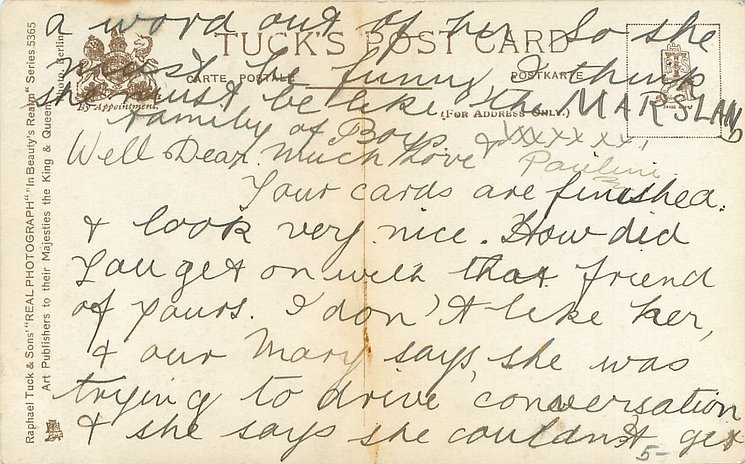 a word out of her. So she
must be funny, I think
she must be like the MARSLAND
family of Boys.
Well Dear. much love & xxxxxxx,
Pauline
Your cards are finished.
& look very nice. How did
You get on with that friend
of yours. I don't like her,
& our Mary says she was
trying to drive conversation
& she says she couldn't get
5-
TUCK'S POST CARD
CARTE POSTALE
POSTKARTE
(FOR ADDRESS ONLY.)
By Appointment.
Raphael Tuck & Sons' "REAL PHOTOGRAPH" "In Beauty's Realm" Series 5365
Art Publishers to their Majesties the King & Queen
Photo, Berlin